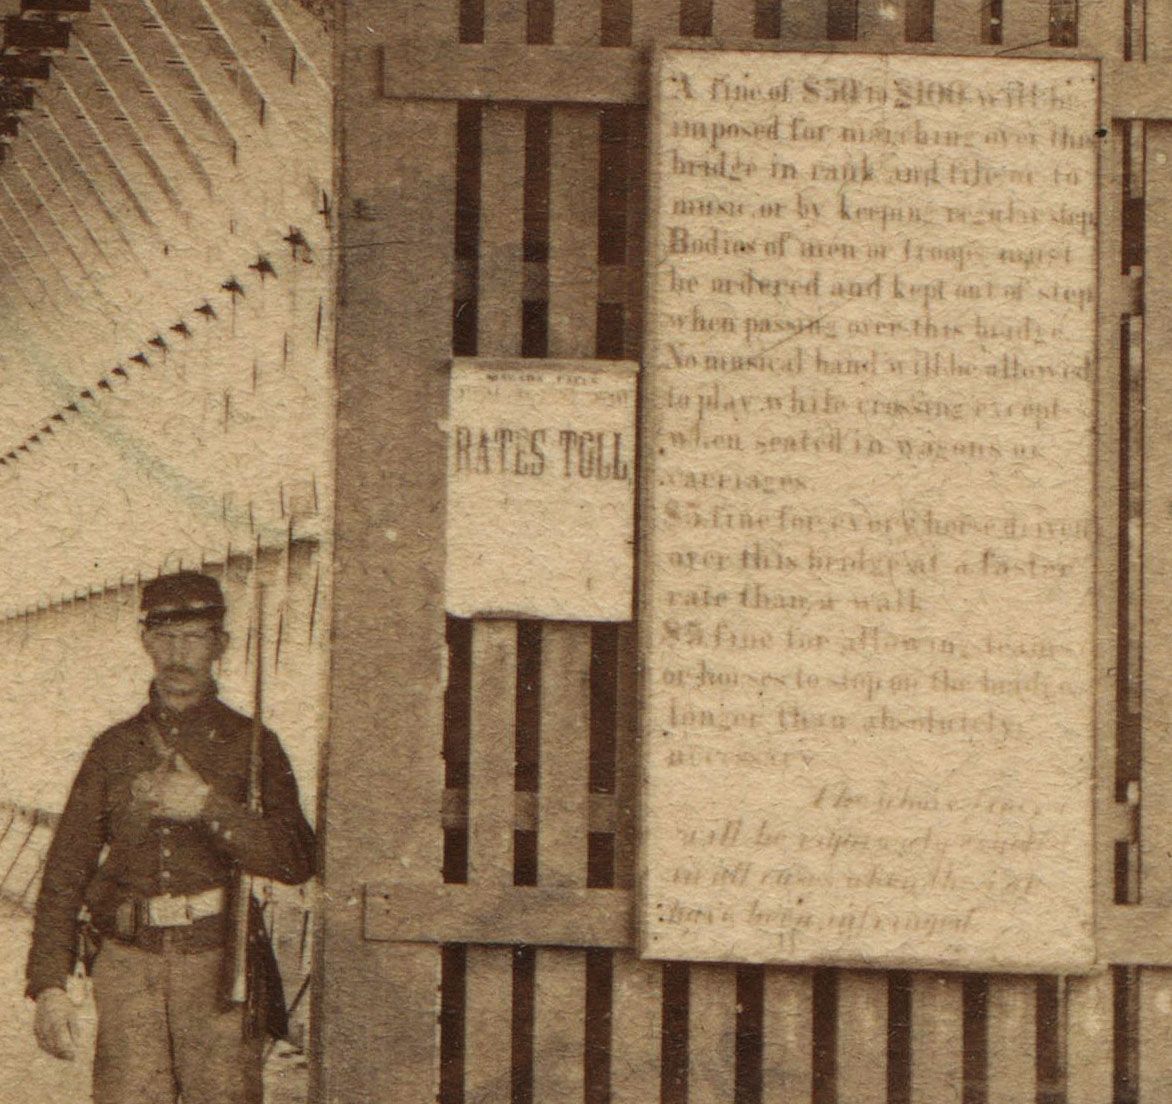 NIAGARA FALLS
RATES TOLL
A fine of $50 to $100 will be
imposed for marching over this
bridge in rank and file or to
music, or by keeping regular step.
Bodies of men or troops must
be ordered and kept out of step
when passing over this bridge.
No musical band will be allowed
to play while crossing except
when seated in wagons or
carriages.
$5 fine for every horse driven
over this bridge at a faster
rate than a walk
$5 fine for allowing teams
or horses to stop on the bridge
longer than absolutely
necessary
The above fines
will be rigorously
in all cases when the
have been infringed